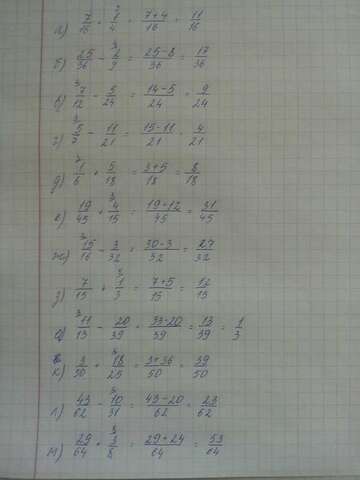 а) 7/16 + 1/4 = 7+4/16 = 11/16
б) 25/36 - 2/9 = 25-8/36 = 17/36
в) 7/12 - 5/24 = 14-5/24 = 9/24
г) 5/7 - 11/21 = 15-11/21 = 4/21
д) 1/6 + 5/18 = 3+5/18 = 8/18
е) 19/45 + 4/15 = 19+12/45 = 31/45
ж) 15/16 - 3/32 = 30-3/32 = 27/32
з) 7/15 + 1/3 = 7+5/15 = 12/15
11/13 - 20/39 = 33-20/39 = 13/39 = 1/3
к) 3/50 + 18/25 = 3+36/50 = 39/50
л) 43/62 - 10/31 = 43-20/62 = 23/62
м) 29/64 + 3/8 = 29+24/64 = 53/64